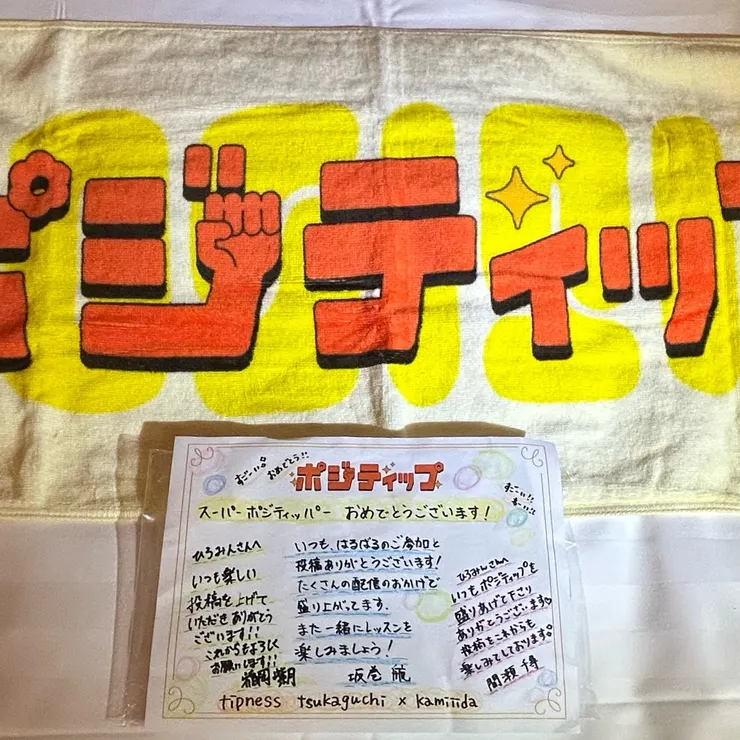 ポジティップ
すごーい。
おめでとう!!
ポジティップ
すごーい!!
すごーい!!
スーパーポジティッパー おめでとうございます!
ひろみんさんへ
いつも楽しい
投稿を上げて
いただきありがとう
ございます!!
これからもよろしく
お願いします!!
いつも、はるばるのご参加と
投稿ありがとうございます!
たくさんの配信のおかげで
盛り上がってます。
また一緒にレッスンを
楽しみましょう!
坂巻
ひろみんさんへ
いつもポジティップを
盛りあげて下さり
ありがとうございます
投稿をこれからも
楽しみにしております。
間瀬
tipness tsukaguchi × kamiiida